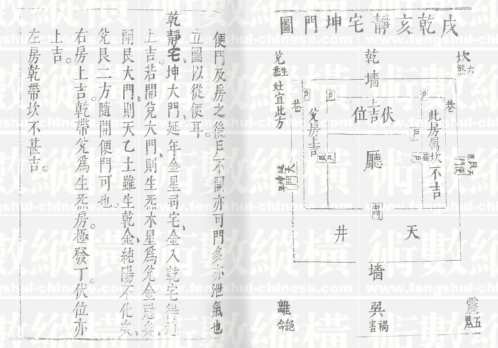 戌乾亥靜宅坤門圖
乾
墻
坎
六煞
兌
生炁
灶宜此方
巷
巷
伏吉位
兌房吉
此房爲坎不吉
廳
天
井
墻
離
絕命
巽
禍害
震
五鬼
便門及房之後戶不開亦可門多亦泄氣也
立圖以從便耳
乾靜宅坤大門延年金星司宅金入乾宅
上吉若開兌大門則生炁木星爲兌金
開艮大門則天乙土雖生乾金純陽不化矣
兌艮二方隨開便門可也
右房上吉乾帶兌爲生炁房極發丁伏位亦
上吉
左房乾帶坎不甚吉